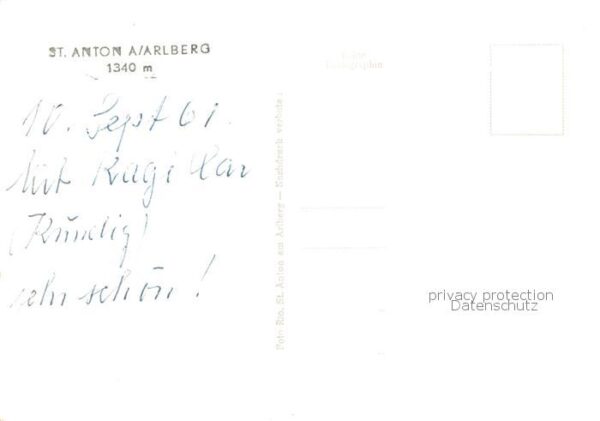 ST. ANTON A/ARLBERG
1340 m
10. Sept 61.
Mit Ragi Car
(Kündig)
sehr schön!
Foto Rio, St. Anton am Arlberg — Nachdruck verboten!
privacy protection
Datenschutz